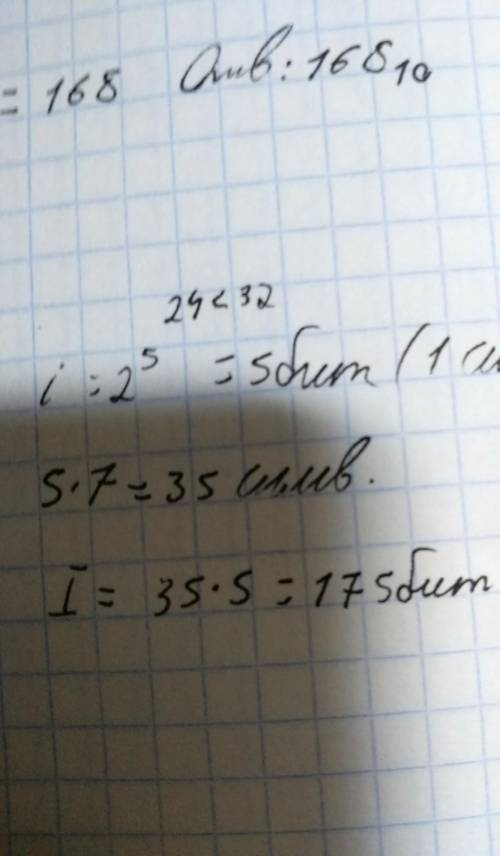 = 168 Отв: 168₁₀
24 < 32
i = 2⁵ = 5 бит (1 си
5·7 = 35 симв.
I = 35·5 = 175 бит